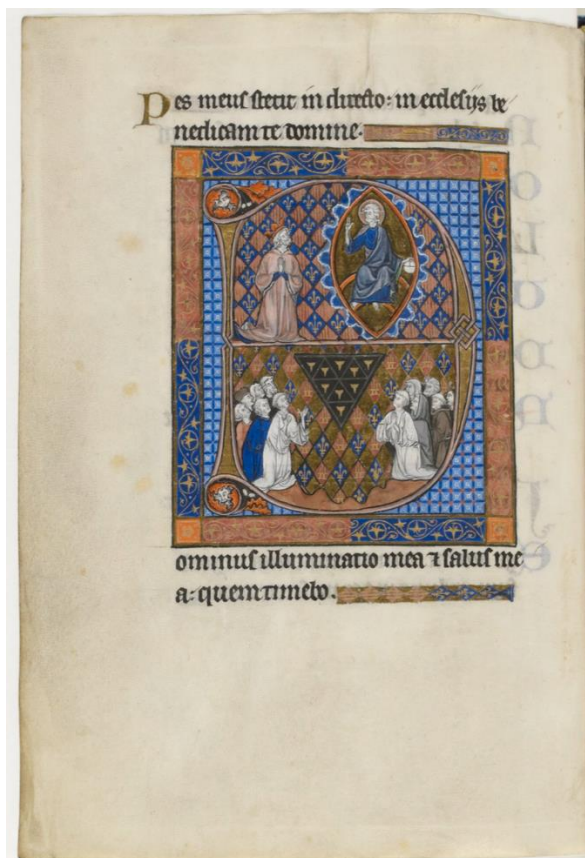 Pes meus stetit in directo: in ecclesijs be
nedicam te domine.
ominus illuminatio mea ⁊ salus me
a: quem timebo.